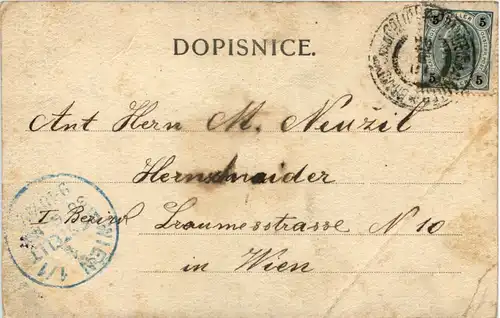 DOPISNICE.
5 5
5 5
Ant Herrn M. Neuzil
Hernschnaider
I. Bezirk Traumesstrasse N 10
in Wien
WIEN
1/1